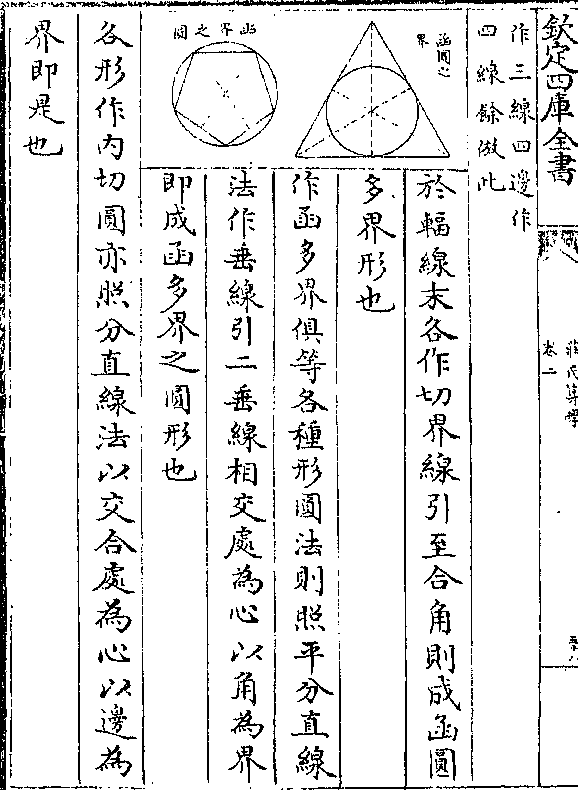 欽定四庫全書
卷二
作三線四邊作
四線餘倣此
函圓之
界
函界之圓
於輻線末各作切界線引至合角則成函圓
多界形也
作函多界俱等各種形圓法則照平分直線
法作垂線引二垂線相交處為心以角為界
即成函多界之圓形也
各形作内切圓亦照分直線法以交合處為心以邊為
界即是也